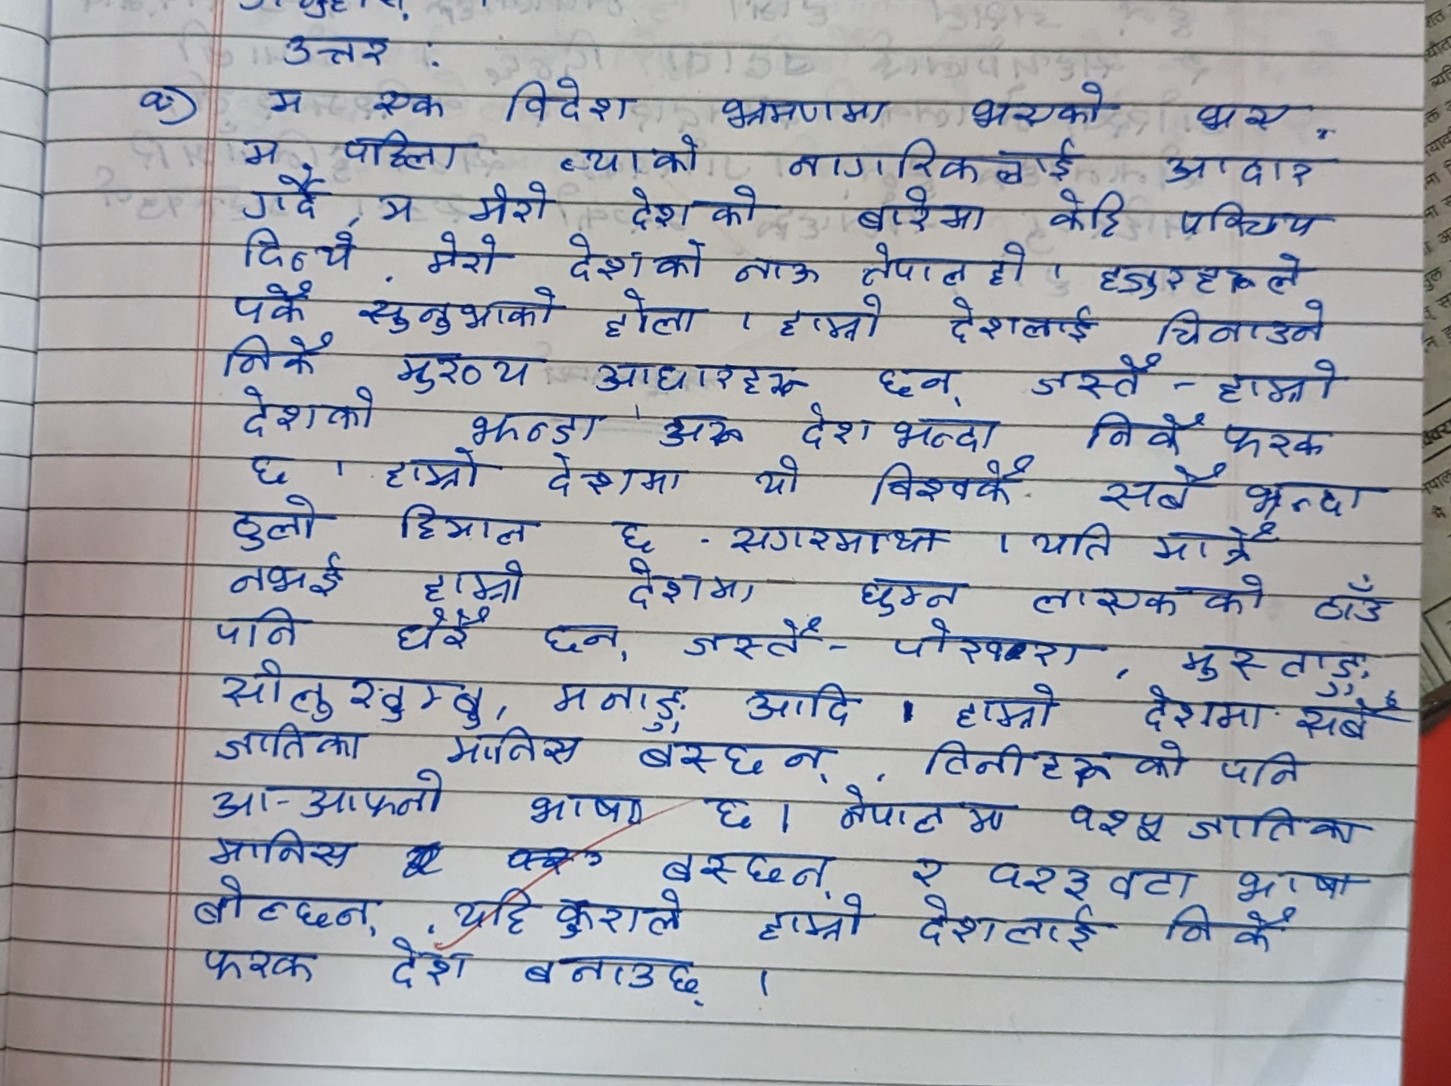 उत्तर :
क) म एक विदेश भ्रमणमा भएको भए,
म पहिला त्याको नागरिकलाई आदार
गर्दै, म मेरो देशको बारेमा केहि परिचय
दिन्थे . मेरो देशको नाऊ नेपाल हो । हजुरहरूले
पकै सुनुभाको होला । हाम्रो देशलाई चिनाउने
निकै मुख्य आधारहरू छन् जस्तै - हाम्रो
देशको झन्डा अरू देश भन्दा निकै फरक
छ । हाम्रो देशमा यो विश्वकै सबै भन्दा
ठुलो हिमाल छ - सगरमाथा । यति मात्रै
नभई हाम्रो देशमा घुम्न लाएकको ठाँउ
पनि धेरै छन्, जस्तै - पोखरा, मुस्ताङ,
सोलुखुम्बु, मनाङ आदि । हाम्रो देशमा सबै
जातिका मानिस बस्छन्, तिनीहरूको पनि
आ-आफ्नो भाषा छ । नेपालमा १२५ जातिका
मानिस बस्छन् र १२३ वटा भाषा
बोल्छन्, यहि कुराले हाम्रो देशलाई निकै
फरक देश बनाउछ् ।